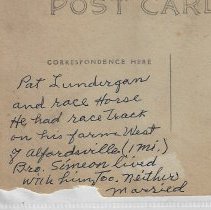 POST CARD
CORRESPONDENCE HERE
Pat Lundergan
and race Horse
He had race Track
on his farm West
of Alfordsville (1 mi)
Bro. Simeon lived
with him, too. Neither
married